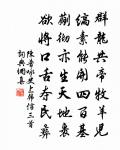 群龍共帝牧羊兒
開四百基
蒯徹亦生天地裏
欲將口舌民彝
陳普詠史上韓信三首
詞典網